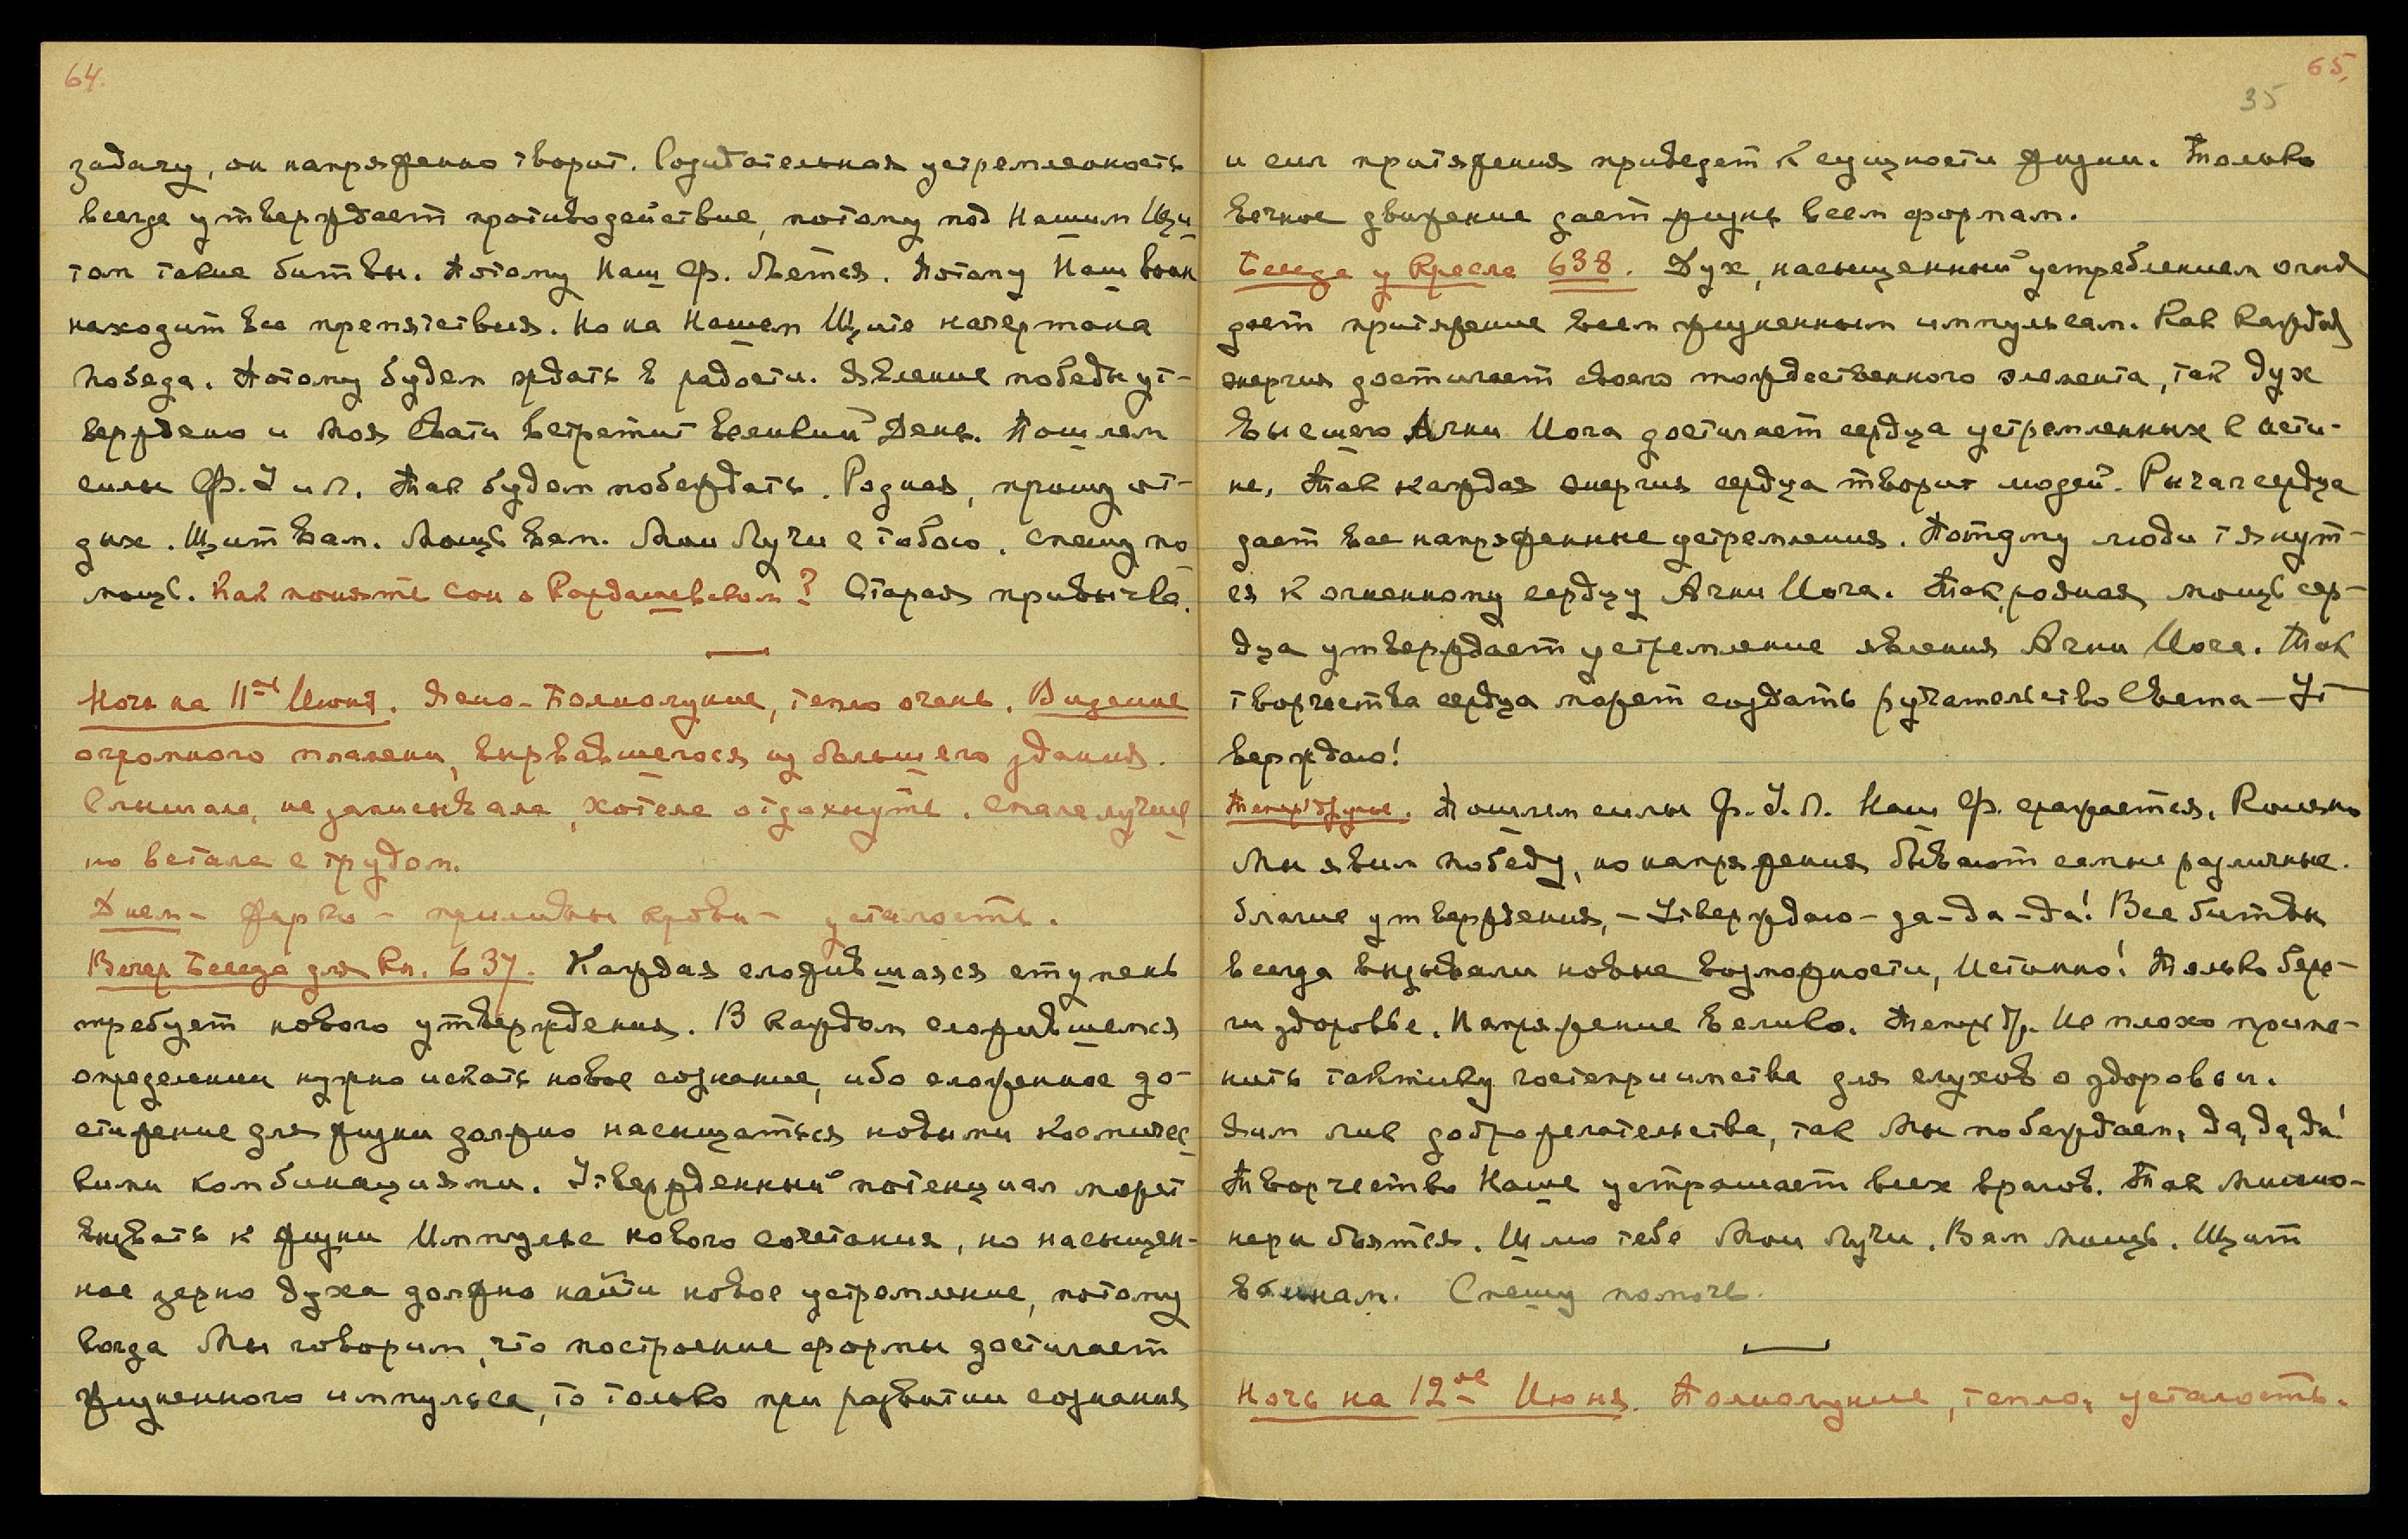 64.
задачу, он напряженно творит. Созидательная устремленность
всегда утверждает противодействие, потому под Нашим Щи
том такие битвы. Потому Наш Ф. бьется. Потому Наш воин
находит все препятствия. Но на Нашем Щите начертана
победа. Потому будем ждать в радости. Явление победы ут-
верждено и Моя Свати встретит великий День. Пошлем
силы Ф. У и Л. Так будем побеждать. Родная, прошу от-
дых. Щит вам. Мощь вам. Мои Лучи с тобою. Спешу по
мощь. Как понять сон о Кордашевском? Старая привычка.
Ночь на 11ое Июня. Ясно - Полнолуние, тепло очень. Видение
огромного пламени, вырвавшегося из большего здания.
Слышала, не записывала, хотела отдохнуть. Спала лучше
но встала с трудом.
Днем - жарко - приливы крови - усталость.
Вечер Беседа для Кн. 637. Каждая сложившаяся ступень
требует нового утверждения. В каждом сложившемся
определении нужно искать новое сознание, ибо сложенное до-
стижение для жизни должно насыщаться новыми космичес
кими комбинациями. Утвержденный потенциал может
вызвать к жизни Импульс нового сочетания, но насыщен-
ное зерно духа должно найти новое устремление, потому
когда Мы говорим, что построение формы достигает
жизненного импульса, то только при развитии сознания
65.
35
и сил притяжения приведет к сущности жизни. Только
вечное движение дает жизнь всем формам.
Беседа у Кресла 638. Дух, насыщенный устреблением огня
дает притяжение всем жизненным импульсам. Как каждая
энергия достигает своего тождественного элемента, так дух
высшего Агни Йога достигает сердца устремленных к исти-
не, Так каждая энергия сердца творит людей. Рычаг сердца
дает все напряженные устремления. Потому люди тянут-
ся к огненному сердцу Агни Йога. Так, родная, мощь сер-
дца утверждает устремление явления Агни Йога. Так
творчества сердца может создать ручательство Света - Ут
верждаю!
Теперь другое. Пошлем силы Ф. У. Л. Наш Ф. сражается. Конечно
Мы явим победу, но напряжения бывают самые различные.
благие утверждения, - Утверждаю - да - да - да! Все битвы
всегда вызывали новые возможности, Истинно! Только бере-
ги здоровье. Напряжение велико. Теперь др. Не плохо приме-
нить тактику гостеприимства для слухов о здоровьи.
Явим лик доброжелательства, так Мы побеждаем, да, да, да!
Творчество Наше устрашает всех врагов. Так Миссио-
неры бьются. Шлю тебе Мои Лучи. Вам Мощь. Щит
воинам. Спешу помочь.
Ночь на 12ое Июня. Полнолуние, тепло, усталость.